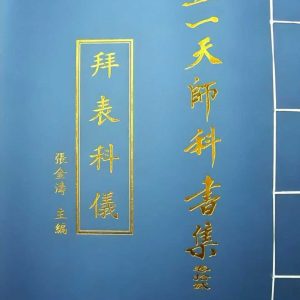 一天師科書集
拜表科儀
張金濤 主編